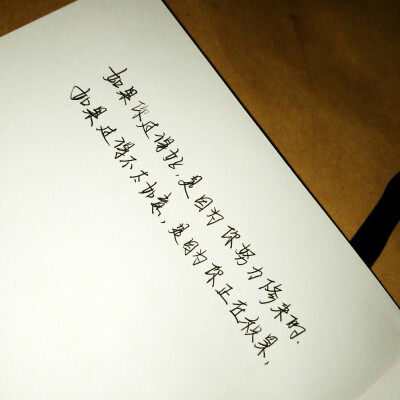 如果你过得好,是因为你努力修来的.
如果过得不太如意,是因为你正在校果,